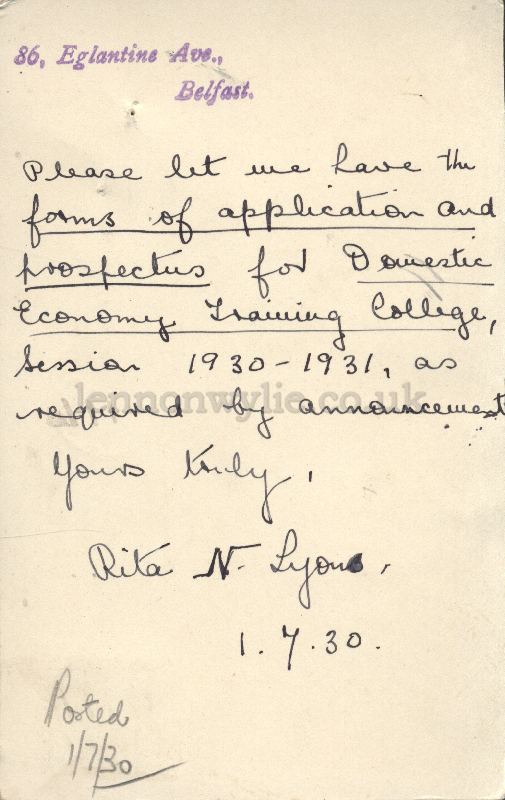 86, Eglantine Ave.,
Belfast.
Please let me have the
forms of application and
prospectus for Domestic
Economy Training College,
Session 1930-1931, as
lennonwylie.co.uk
required by announcement
Yours truly,
Rita N. Lyons,
1.7.30.
Posted
1/7/30